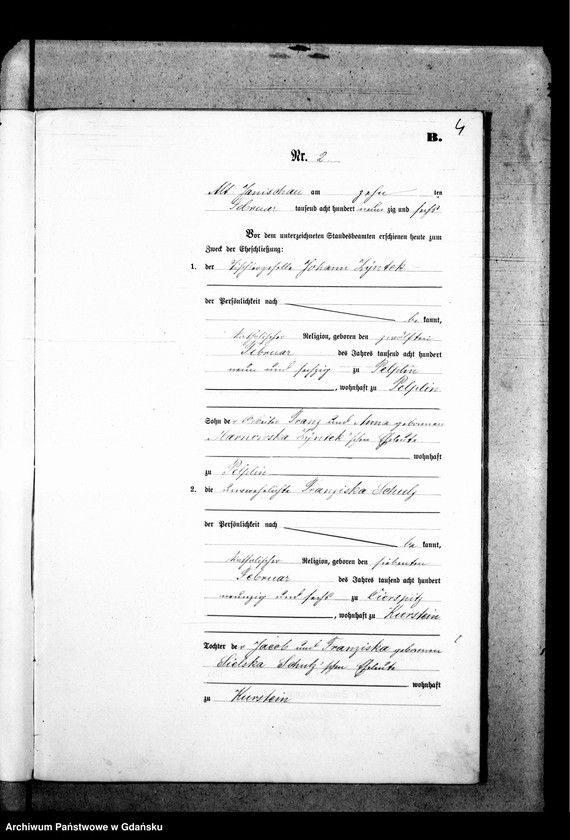 4
B.
Nr. 2
Alt Janischau am zehn ten
Februar tausend acht hundert neun zig und sechs
Vor dem unterzeichneten Standesbeamten erschienen heute zum
Zweck der Eheschließung:
1. der Tischlergeselle Johann Zyntek
der Persönlichkeit nach
be kannt,
katholischer Religion, geboren den zwölften
Februar des Jahres tausend acht hundert
neun und sechzig zu Pelplin
, wohnhaft zu Pelplin
Sohn der Arbeiter Franz und Anna geborenen
Zyntek'schen Eheleute
wohnhaft
zu Pelplin
2. die unverehelichte Franziska Schulz
der Persönlichkeit nach
be kannt,
katholischer Religion, geboren den siebenten
Februar des Jahres tausend acht hundert
und sechs zu Cierspitz
, wohnhaft zu Kurstein
Tochter der Jacob und Franziska geborenen
Sielska Schulz'schen Eheleute
wohnhaft
zu Kurstein
Archiwum Państwowe w Gdańsku